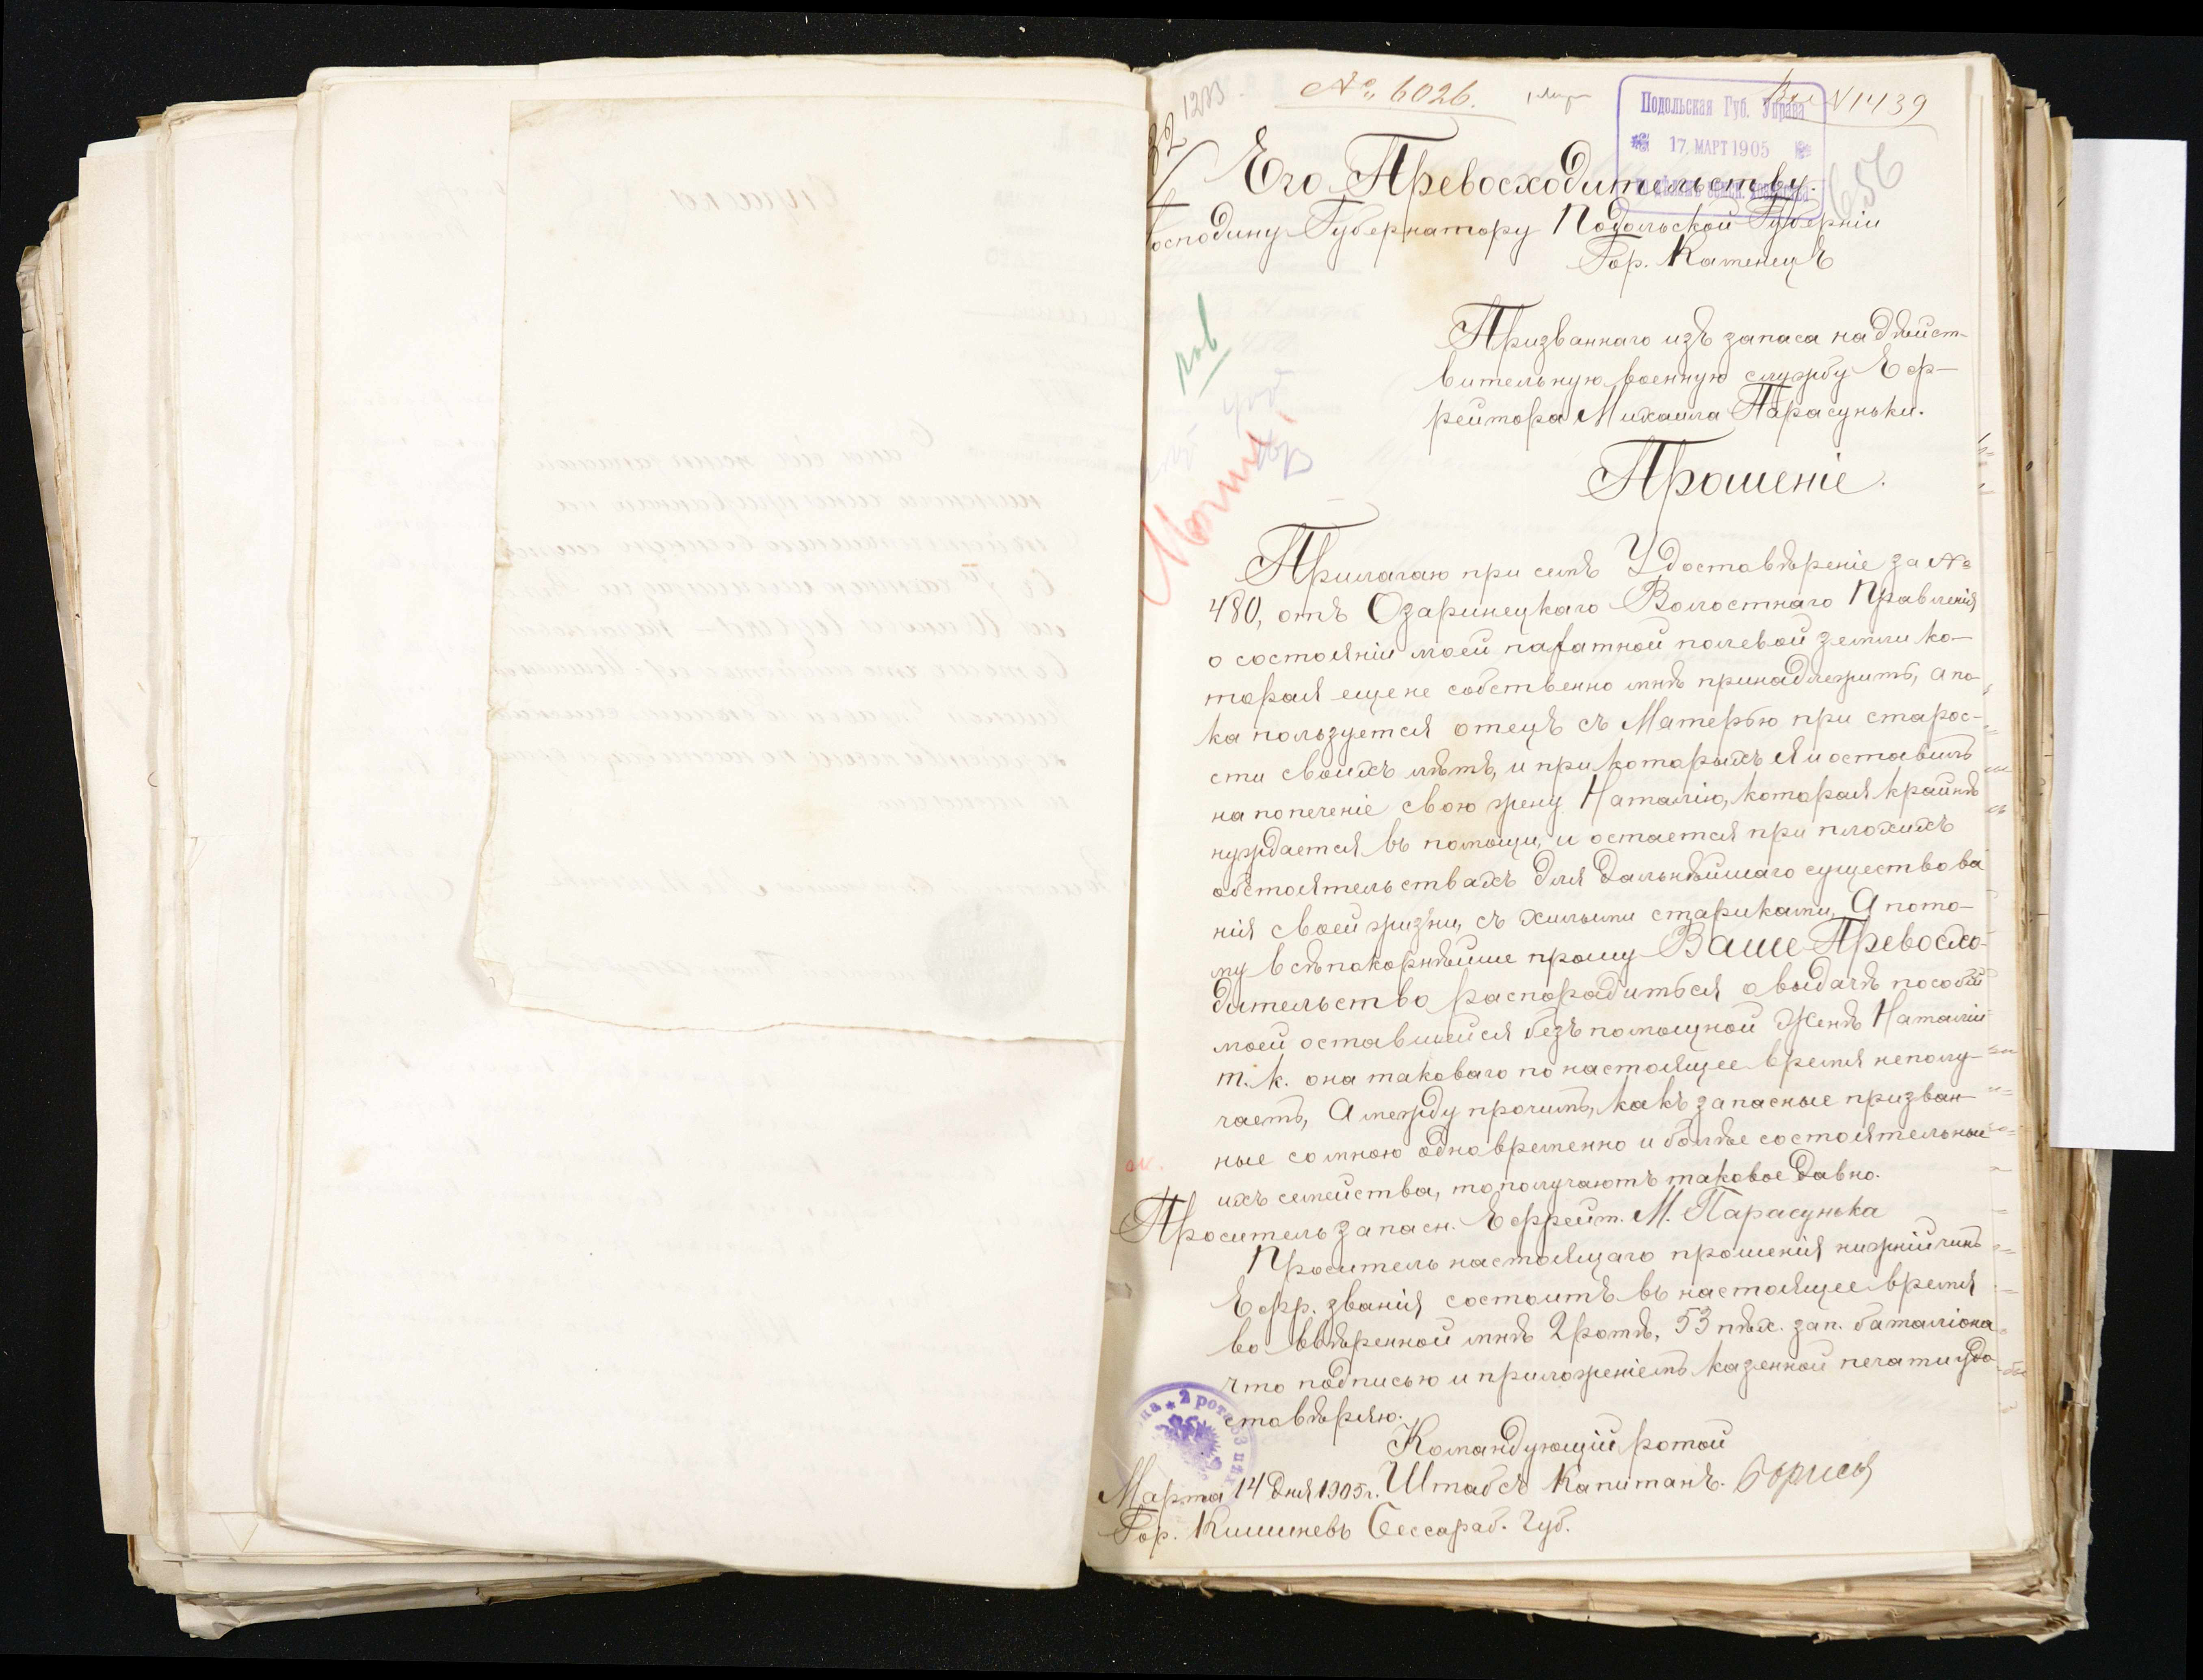 № 6026.
Подольская Губ. Управа
17. МАРТ 1905
656
Его Превосходительству.
Господину Губернатору Подольской Губерніи
Гор. Каменецъ
Призваннаго изъ запаса на дѣйст-
вительную военную службу Еф-
рейтора Михаила Парасуньки.
Прошеніе.
Прилагаю при семъ Удостовѣреніе за №
480, отъ Озаринецкаго Волостнаго Правленія
о состояніи моей пахатной полевой земли ко-
торая еще не собственно мнѣ принадлежитъ, а по-
ка пользуется отецъ съ Матерью при старос-
сти своихъ лѣтъ, и при которыхъ я и оставилъ
на попеченіе свою жену Наталію, которая крайнѣ
нуждается въ помощи, и остается при плохихъ
обстоятельствахъ для дальнѣйшаго существова
нія своей жизни, съ хилыми стариками, А пото-
му всѣпокорнѣйше прошу Ваше Превосхо-
дительство распорадиться о выдачѣ пособія
моей оставшейся безъ помощной Женѣ Наталіи
т. к. она таковаго по настоящее время неполу-
чаетъ, А между прочимъ, какъ запасные призван-
ные со мною одновременно и болѣе состоятельные
ихъ семейства, то получаютъ таковое давно.
Проситель запасн. Ефрейт. М. Парасунька
Проситель настоящаго прошенія нижній чинъ
Ефр. званія состоитъ въ настоящее время
во ввѣренной мнѣ 2 ротѣ, 53 пѣх. зап. баталіона
что подписью и приложеніемъ казенной печати удо-
стовѣряю.
2 рота 53 пѣх
Командующій ротой
Марта 14 дня 1905 г. Штабсъ Капитанъ.
Гор. Кишиневъ Бессараб. Губ.